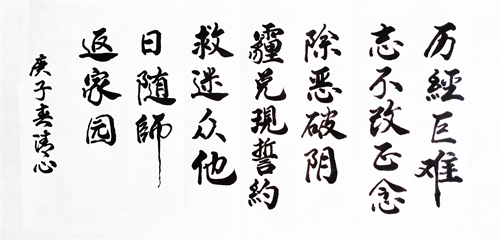 历经巨难
志不改正念
除恶破阴
霾兑现誓约
救迷众他
日随师
返家园
庚子春清心